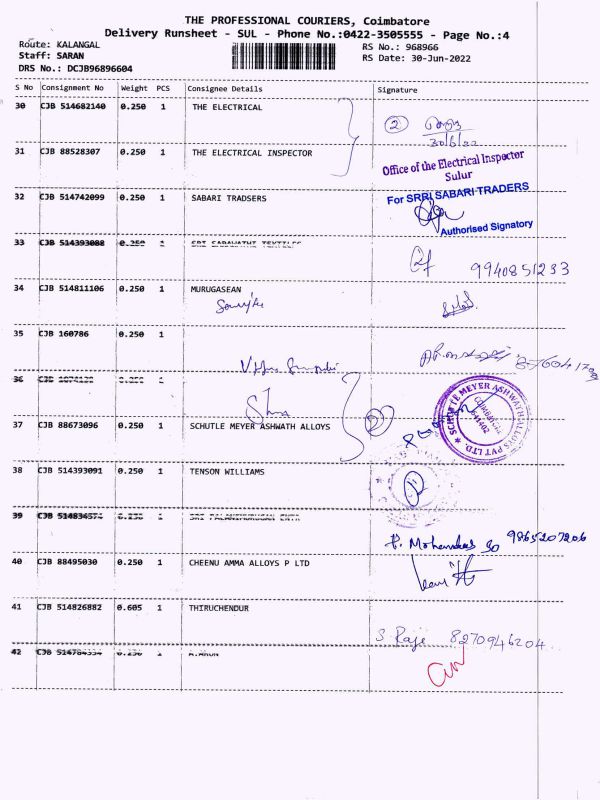 THE PROFESSIONAL COURIERS, Coimbatore
Delivery Runsheet - SUL - Phone No.:0422-3505555 - Page No.:4
Route: KALANGAL
RS No.: 968966
Staff: SARAN
RS Date: 30-Jun-2022
DRS No.: DCJB96896604
S No Consignment No Weight PCS Consignee Details Signature
30 CJB 514682140 0.250 1 THE ELECTRICAL
2
30/6/22
31 CJB 88528307 0.250 1 THE ELECTRICAL INSPECTOR
Office of the Electrical Inspector
Sulur
32 CJB 514742099 0.250 1 SABARI TRADSERS
For SRRI SABARI TRADERS
Authorised Signatory
33 CJB 514393088 0.250 1
9940851233
34 CJB 514811106 0.250 1 MURUGASEAN
35 CJB 160786 0.250 1
36 CJB
37 CJB 88673096 0.250 1 SCHUTLE MEYER ASHWATH ALLOYS
2
SCHUTLE MEYER ASHWATH ALLOYS PVT LTD.
38 CJB 514393091 0.250 1 TENSON WILLIAMS
39 CJB
P. Mohandas 9865207206
40 CJB 88495030 0.250 1 CHEENU AMMA ALLOYS P LTD
41 CJB 514826882 0.605 1 THIRUCHENDUR
S Raje 8270946204
42 CJB